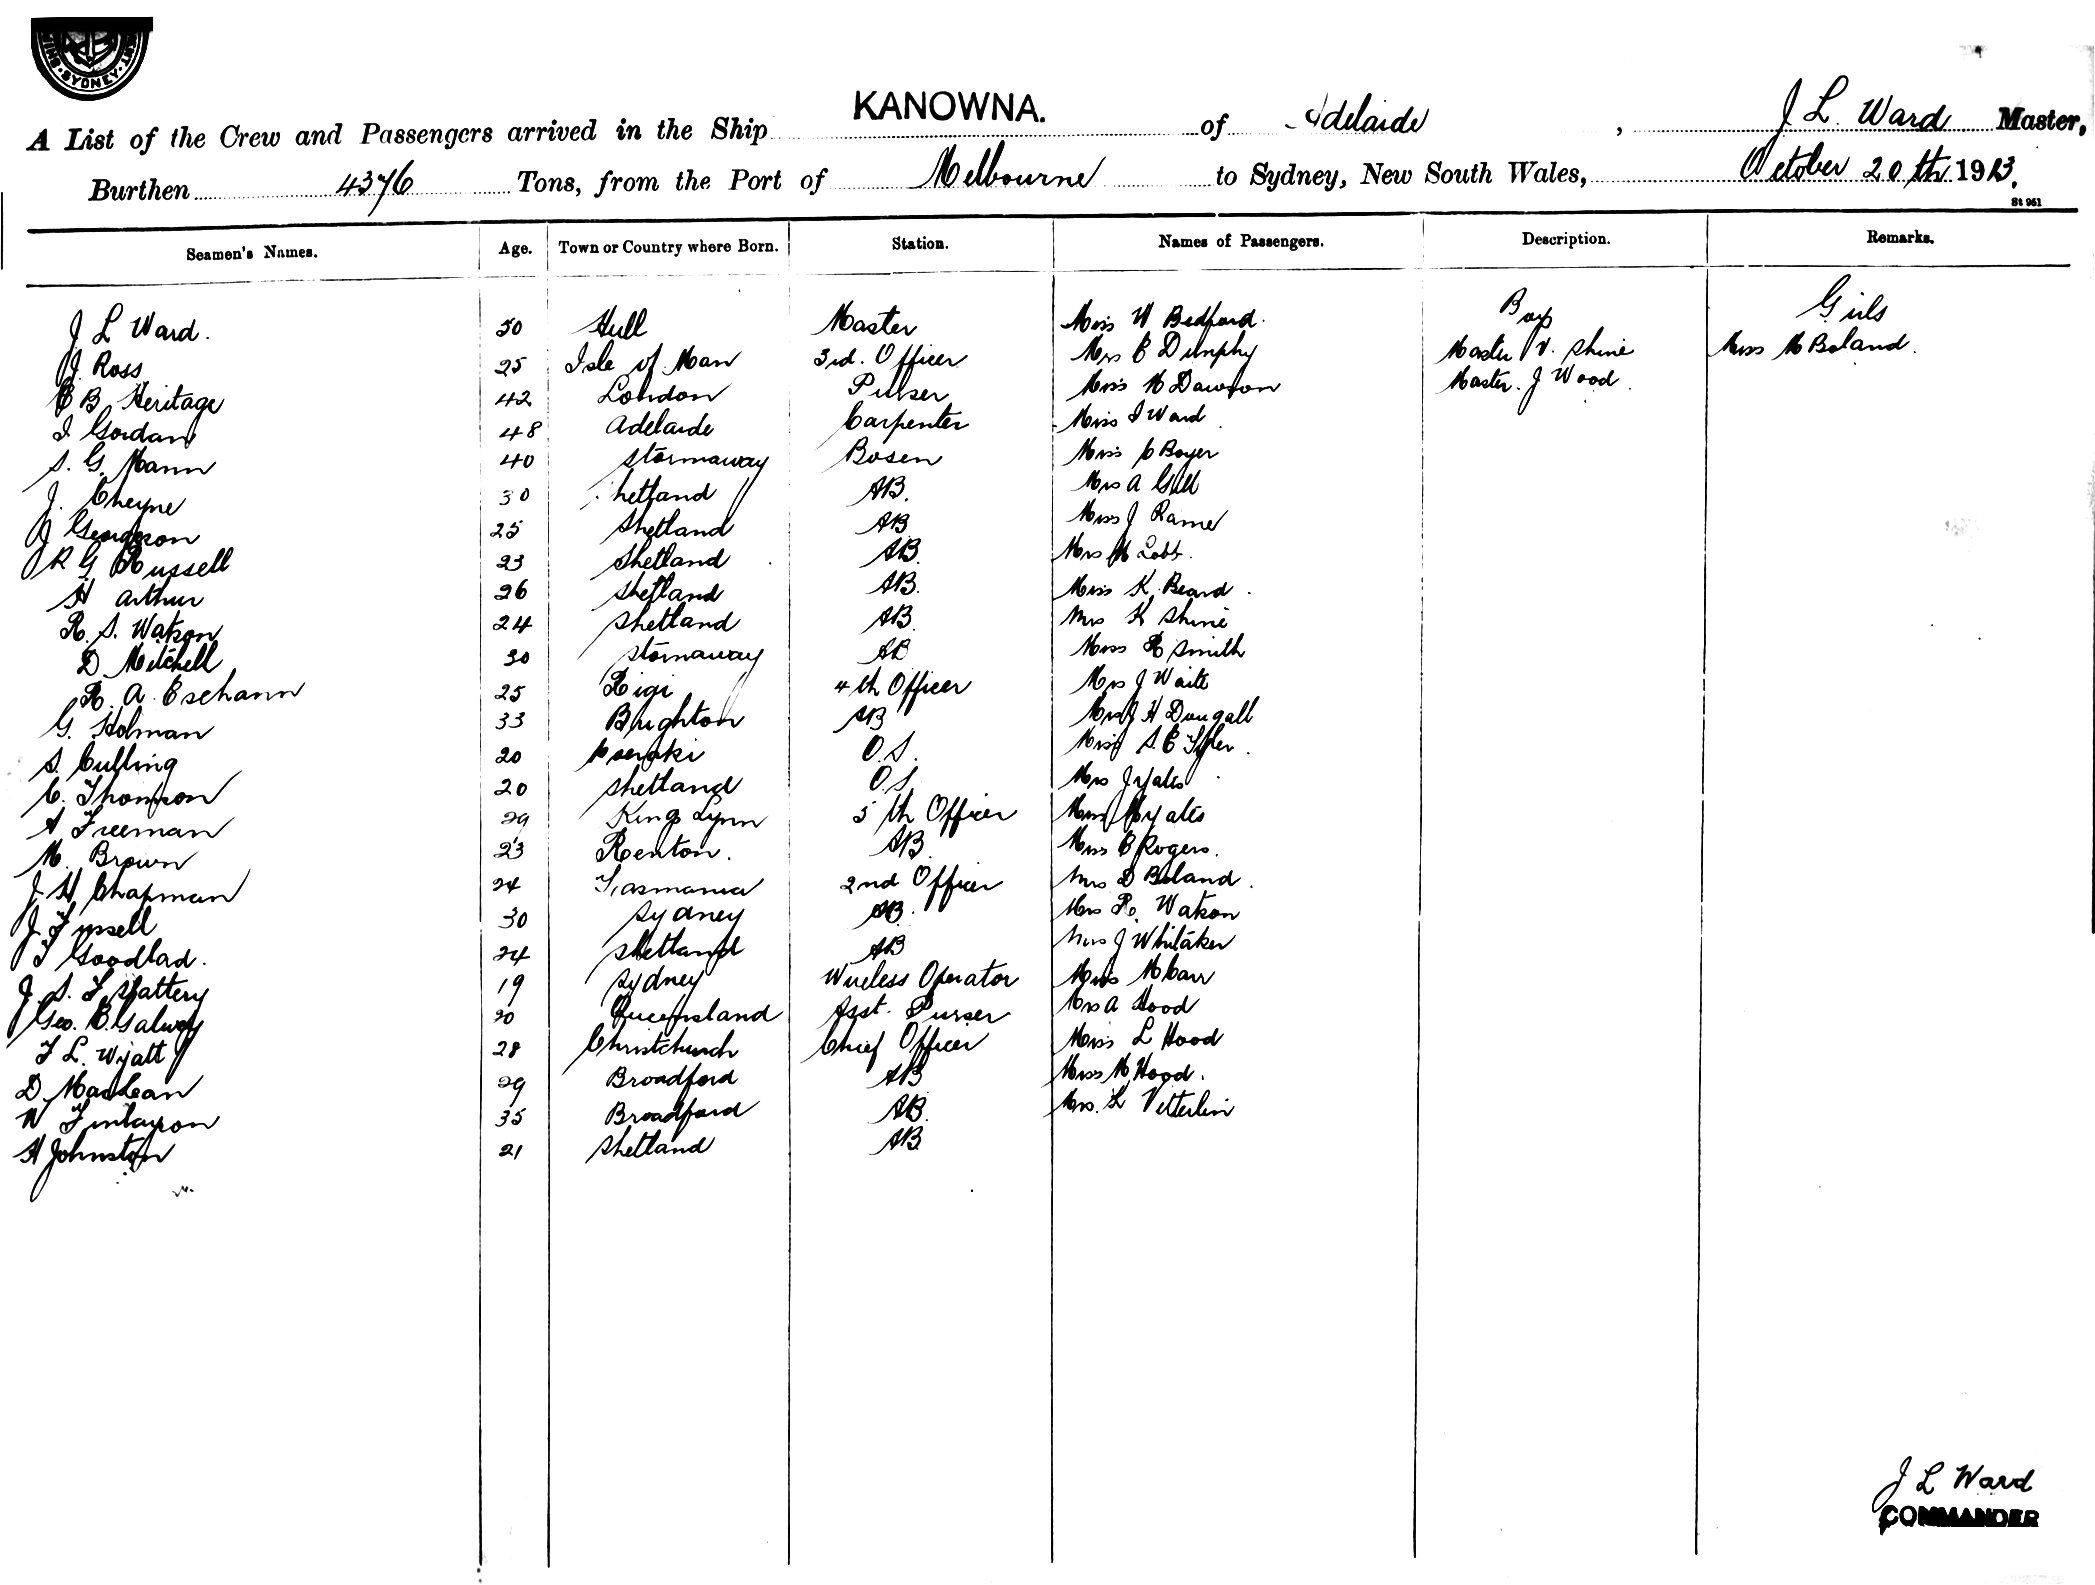 SYDNEY
KANOWNA.
A List of the Crew and Passengers arrived in the Ship KANOWNA. of Adelaide, J L Ward Master,
Burthen 4376 Tons, from the Port of Melbourne to Sydney, New South Wales, October 20th 1913.
St 951
Seamen's Names. Age. Town or Country where Born. Station. Names of Passengers. Description. Remarks.
Boys Girls
J L Ward. 50 Hull Master Miss W Bedford.
J Ross 25 Isle of Man 3rd. Officer Mrs E Dunphy Master V. Shine Miss M Boland.
E B Heritage 42 London Purser Miss M Dawson Master. J Wood.
I Gordan 48 Adelaide Carpenter Miss I Ward
S. G. Mann 40 Stornaway Bosen Miss C Boyer
J. Cheyne 30 Shetland AB. Mrs A Gill
J Georgeson 25 Shetland AB Miss J Rame
R G Russell 23 Shetland AB. Mrs M Lobb.
H Arthur 26 Shetland AB. Miss K. Beard.
R. S. Watson 24 Shetland AB. Mrs K Shine
D Mitchell 30 Stornaway AB Miss R Smith
R. A. Eschann 25 Rigi 4th Officer Mrs J Waite
G. Holman 33 Brighton AB Mrs J H Dougall
S. Culling 20 O.S. Miss S. E Tyler.
C. Thomson 20 Shetland O.S. Mrs J Yates
A Freeman 29 Kings Lynn 5th Officer Miss M Yates
M. Brown 23 Renton. AB. Miss E Rogers.
J. H. Chapman 24 Tasmania 2nd Officer Mrs D Boland.
J. Fussell 30 Sydney AB. Mrs R. Watson
T Goodlad. 24 Shetland AB Mrs J Whitaker
J. S. F Slattery 19 Sydney Wireless Operator Miss M Carr
Geo. E. Galwey 20 Queensland Asst. Purser Mrs A Hood
F L. Wyatt 28 Christchurch Chief Officer Miss L Hood
D. MacLean 29 Broadford AB Miss M. Hood.
W Finlayson 35 Broadford AB. Mrs. L Vetterlin
H Johnston 21 Shetland AB.
J L Ward
COMMANDER